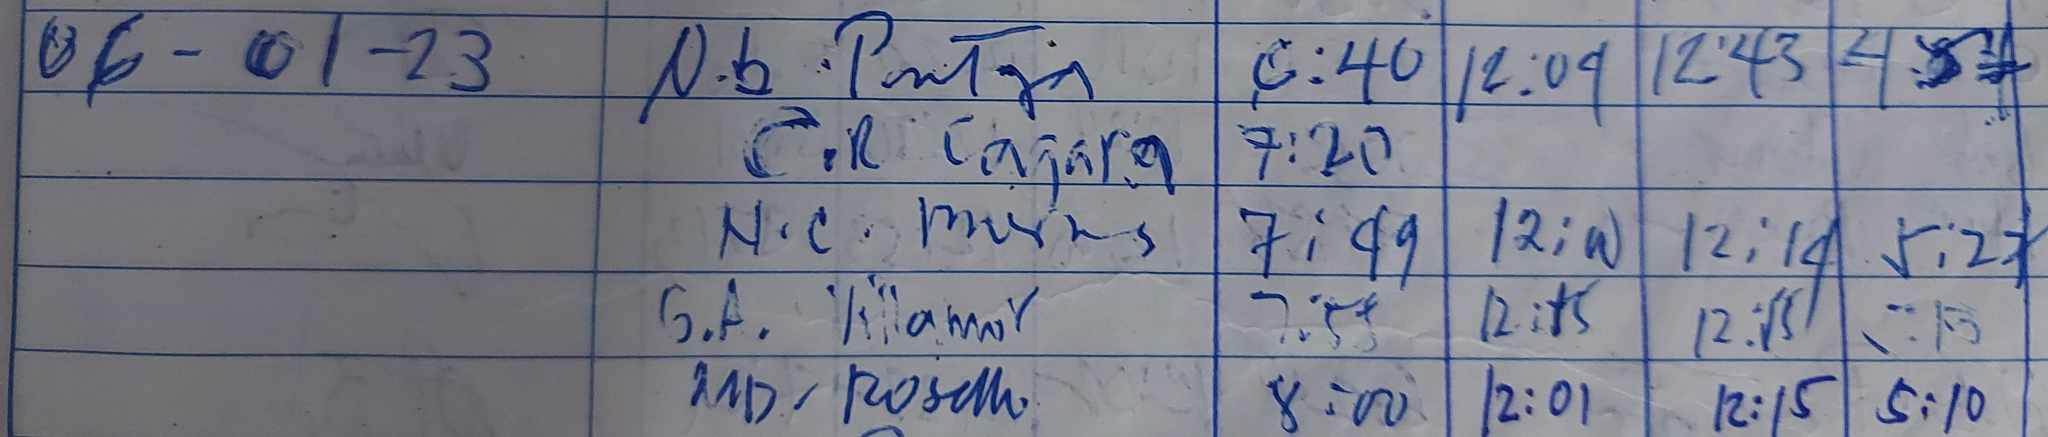 06-01-23 N.b. 6:40 12:09 12:43
C.R Cagara 7:20
N.C. 7:49 12:10 12:14 5:27
S.A. Villamor 7:55 12:15 12:15
MD. 8:00 12:01 12:15 5:10